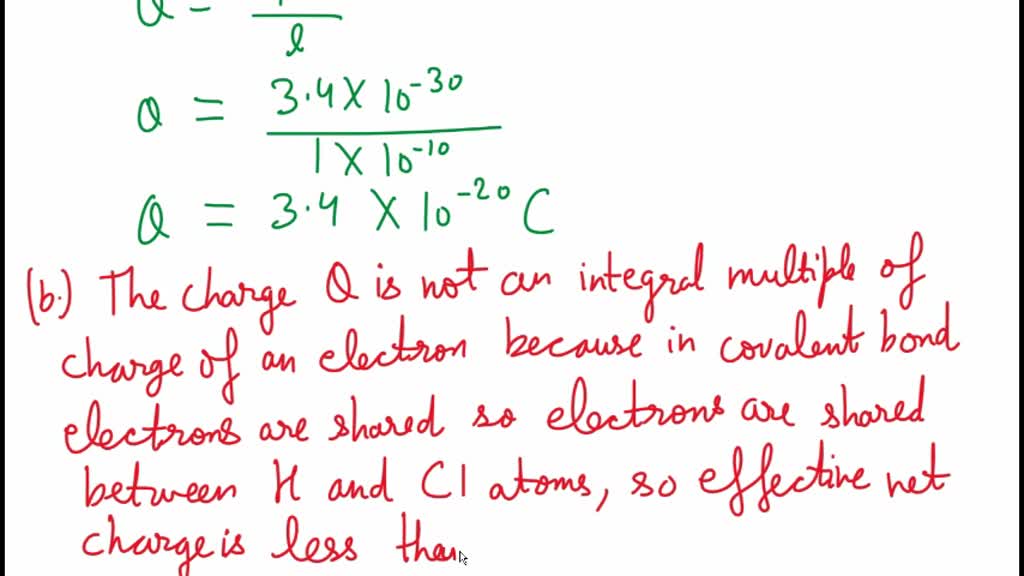 Q =
l
Q = 3.4 X 10^-30
1 X 10^-10
Q = 3.4 X 10^-20 C
(b.) The charge Q is not an integral multiple of
charge of an electron because in covalent bond
electrons are shared so electrons are shared
between H and Cl atoms, so effective net
charge is less than